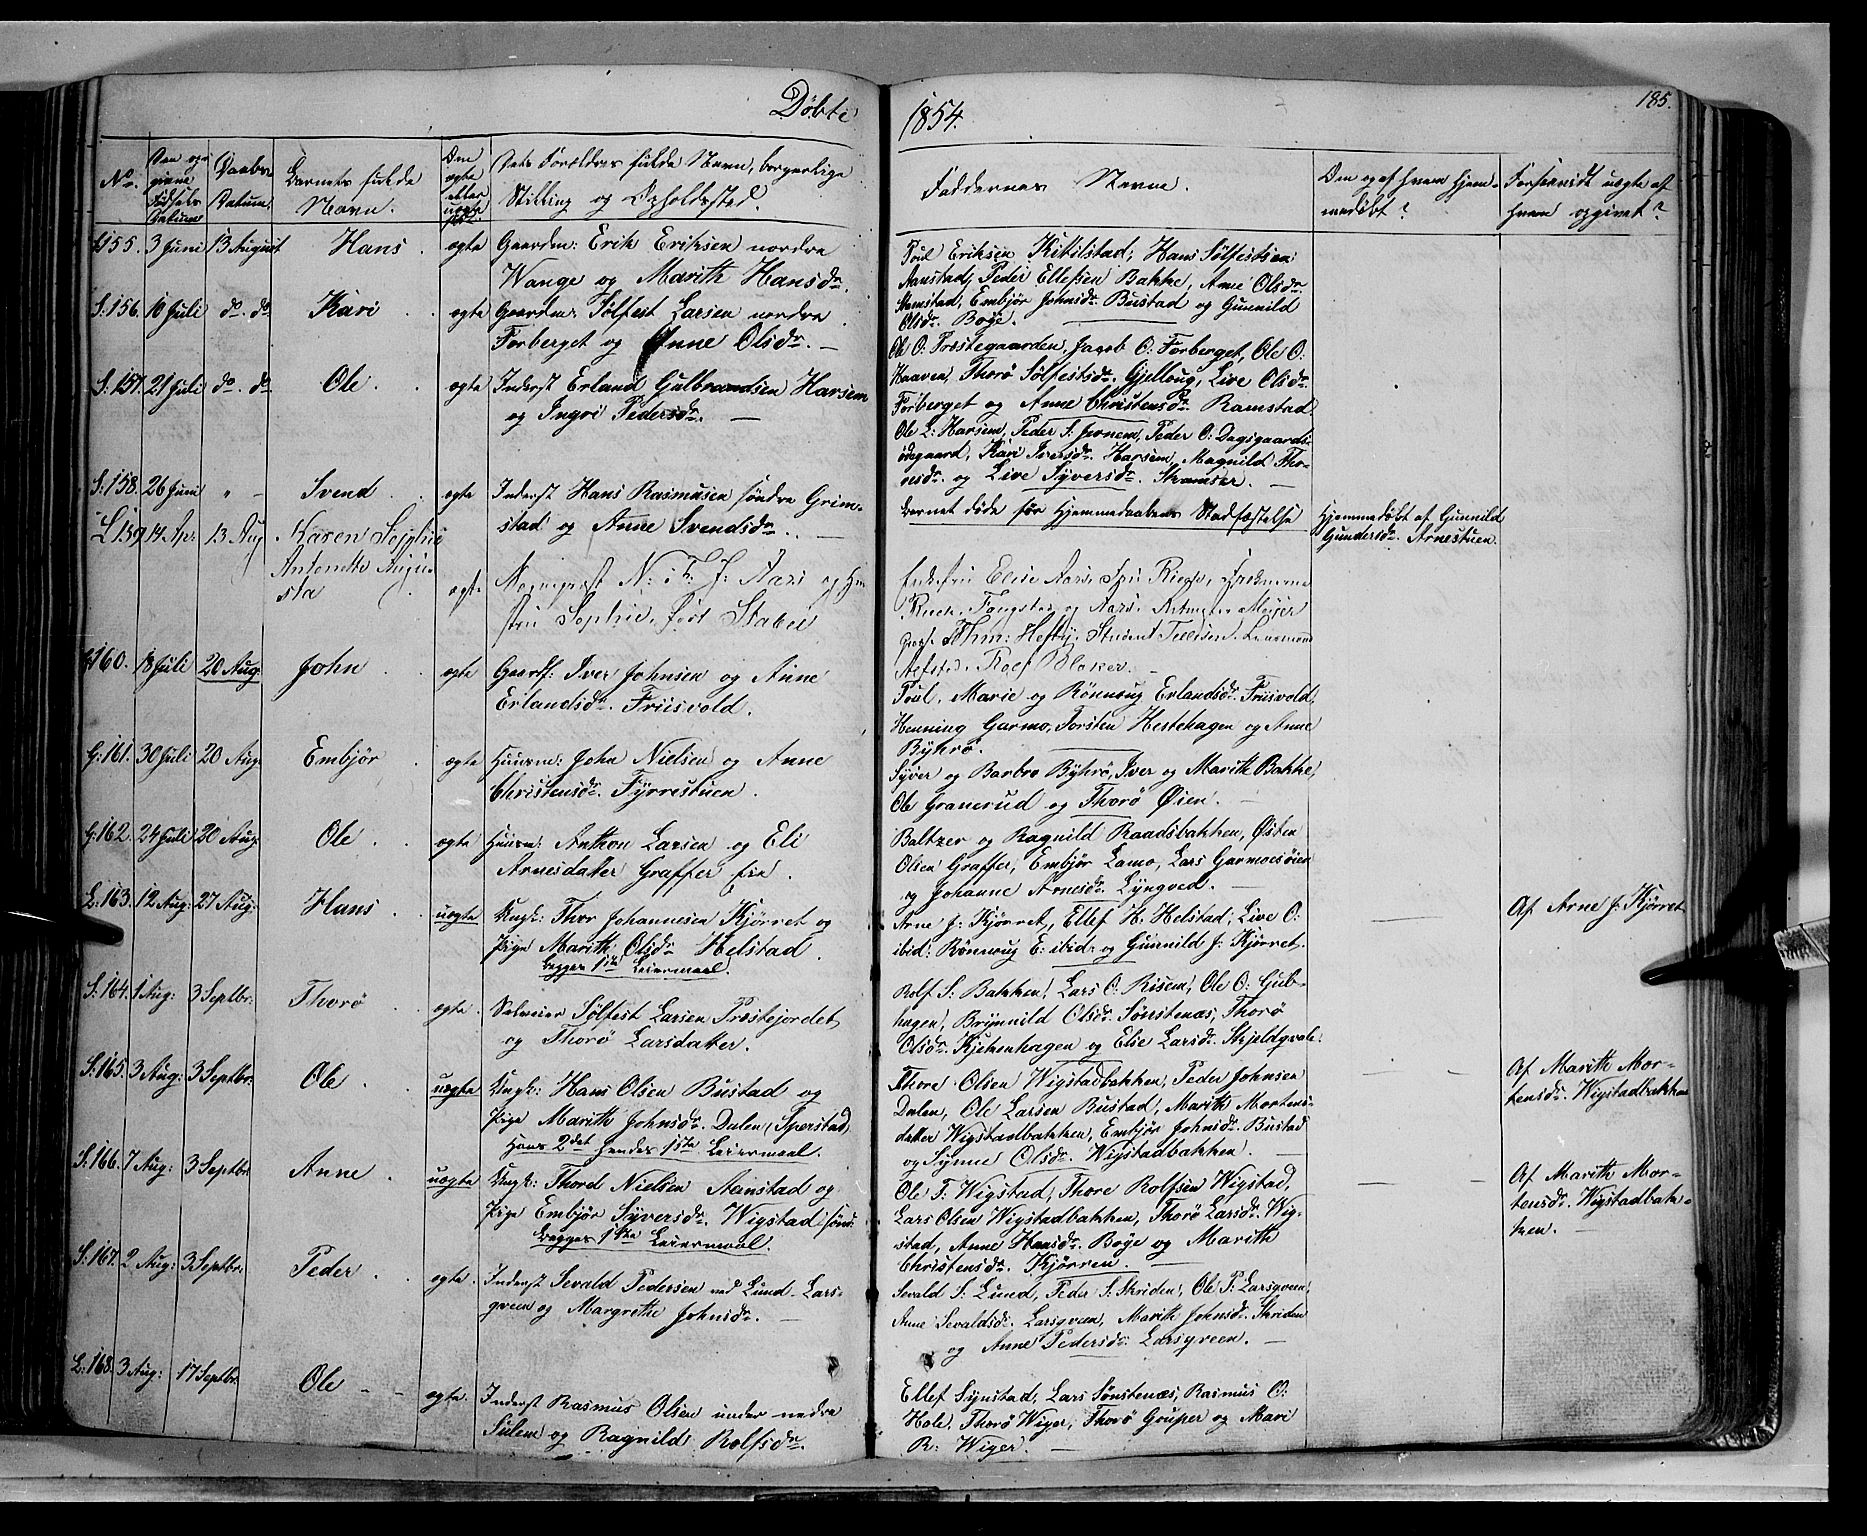 Döbte
1854.
185.
No.
Den opgivne Födsels Datum
Daabs Datum.
Barnets fulde Navn.
Om ægte eller uægte født.
Dets Forældres fulde Navn, borgerlige Stilling og Opholdssted.
Faddernes Navne.
Om og af hvem hjemmedöbt?
Forsaavidt uægte af hvem opgivet?
S. 155. 3 Juni 13 August Hans ægte Gaardm: Erik Eriksen nordre
Wange og Marith Hansdr.
Poul Eriksen Kikilstad, Hans Sölfestsen
Aanstad, Peder Ellefsen Bakke, Anne Olsdr.
Aamstad, Embjör Johnsdr. Bustad og Gunnild
Olsdr. Böye.
S. 156. 10 Juli do. do. Kari ægte Gaardm: Sölfest Larsen nordre
Forberget og Anne Olsdr.
Ole O: Præstegaarden, Jacob O: Forberget, Ole O:
Haaven, Thorö Sölfestsdr. Gjelloug, Live Olsdr.
Forberget og Anne Christensdr. Ramstad
S. 157. 21 Juli do. do. Ole ægte Inderst Erland Gulbrandsen Harsem
og Ingri Pedersdr.
Ole L: Harsem, Peder S: Jernem, Peder O: Dagsgaards-
ödegaard, Kari Iversdr. Harsem, Magnild Tho-
resdr. og Live Syversdr. Stramser.
S. 158. 26 Juni " - Svend ægte Inderst Hans Rasmusen söndre Grim-
stad og Anne Svendsdr.
Barnet döde för Hjemmedaabens Stadfæstelse
Hjemmedöbt af Gunnild
Gundersdr. Arnestuen.
L. 159 14 Apr. 13 Aug Karen Sophie
Antonette Augu-
sta
ægte Sogneprest N: i F. J: Aars og Hu-
stru Sophie, född Stabel
Enkefru Elise Aars, Fru Riege, Frökenerne
Rieck, Tangstad og Aars, Ritmester Meyer
Prof. Thm: Hefty, Student Tellesen, Lensmand
Aafstad, Rolf Blaker.
S. 160. 18 Juli 20 Aug. John ægte Gaardm: Iver Johnsen og Anne
Erlandsdr. Friisvold.
Poul, Marie og Rönnoug Erlandsdr. Friisvold
Henning Garmo, Torsten Hestehagen og Anne
Byhrö.
G. 161. 30 Juli 20 Aug. Embjör ægte Huusm: John Nielsen og Anne
Christensdr. Fyrrestuen.
Syver og Barbro Byhrö, Iver og Marith Bakke,
Ole Granerud og Thorö Öien.
G. 162. 24 Juli 20 Aug. Ole ægte Huusm: Anthon Larsen og Eli
Arnesdatter Graffer eie.
Baltzer og Ragnild Raadsbakken, Östen
Olsen Graffer, Embjör Lamo, Lars Garmoesöien
og Johanne Arnesdr. Lyngved.
L. 163. 12 Aug: 27 Aug: Hans uægte Ungk: Thor Johannesen Kjörret og
Pige Marith Olsdr. Helstad.
Begges 1ste Leiermaal.
Arne J: Kjörret, Ellef H: Helstad, Live O:
ibid: Rönnoug E: ibid: og Gunnild J: Kjörret.
Af Arne J: Kjörret
S. 164. 1 Aug: 3 Septbr: Thorö ægte Selveier Sölfest Larsen Præstejordet
og Thorö Larsdatter.
Rolf S: Bakken, Lars O: Risem, Ole O: Gub-
hagen, Brynnild Olsdr. Sönstenæs, Thorö
Olsdr. Kjekenhagen og Elie Larsdr. Skjeldgvale.
S. 165. 3 Aug: 3 Septbr: Ole uægte Ungk: Hans Olsen Bustad og
Pige Marith Johnsdr. Dalen (Sperstad)
Hans 2det hendes 1ste Leiermaal.
Thore Olsen Wigstadbakken, Peder Johnsen
Dalen, Ole Larsen Bustad, Marith Mortens-
datter Wigstadbakken, Embjör Johnsdr. Bustad
og Synne Olsdr. Wigstadbakken.
Af Marith Mor-
tensdr. Wigstadbakken
S. 166. 7 Aug: 3 Septbr. Anne uægte Ungk: Thord Nielsen Aanstad og
Pige Embjör Syversdr. Wigstad sönd:
Begges 1ste Leiermaal.
Ole T: Wigstad, Thore Rolfsen Wigstad,
Lars Olsen Wigstadbakken, Thorö Larsdr. Wig-
stad, Anne Hansdr. Böye og Marith
Christensdr. Kjörren.
Af Marith Mor-
tensdr. Wigstadbak-
ken.
S. 167. 2 Aug: 3 Septbr. Peder ægte Inderst Sevald Pedersen ved Lund Lars-
gveen og Margrethe Johnsdr.
Sevald S: Lund, Peder S: Skriden, Ole P: Larsgveen,
Anne Sevaldsdr. Larsgveen, Marith Johnsdr. Skriden
og Anne Pedersdr. Larsgveen.
L. 168. 3 Aug: 17 Septbr. Ole ægte Inderst Rasmus Olsen under nedre
Sulem og Ragnild Rolfsdr.
Ellef Synstad, Lars Sönstenæs, Rasmus O:
Hole, Thorö Wiger, Thorö Grouper og Mari
R: Wiger.